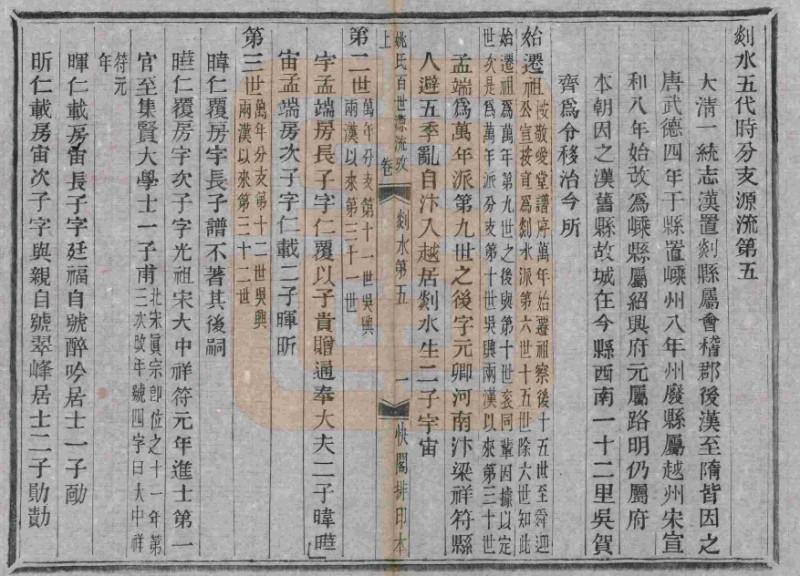 剡水五代時分支源流第五
大清一統志漢置剡縣屬會稽郡後漢至隋皆因之
唐武德四年于縣置嵊州八年州廢縣屬越州宋宣
和八年始改爲嵊縣屬紹興府元屬路明仍屬府
本朝因之漢舊縣故城在今縣西南一十二里吳賀
齊爲令移治今所
始遷祖按敬愛堂譜序萬年始遷祖察後十五世至舜迎
公宣按宜爲剡水派第六世十五世除六世知此
始遷祖爲萬年第九世之後與第十世亥同輩因據以定
世次是爲萬年派分支第十世吳興兩漢以來第三十世
孟端爲萬年派第九世之後字元卿河南汴梁祥符縣
人避五季亂自汴入越居剡水生二子宇宙
姚氏百世源流攷
卷上
剡水第五
一
快閣排印本
第二世萬年分支第十一世吳興
兩漢以來第三十一世
宇孟端房長子字仁覆以子貴贈通奉大夫二子暐曀
宙孟端房次子字仁載二子暉昕
第三世萬年分支第十二世吳興
兩漢以來第三十二世
暐仁覆房宇長子譜不著其後嗣
曀仁覆房宇次子字光祖宋大中祥符元年進士第一
官至集賢大學士一子甫北宋眞宗卽位之十一年第
三次改年號四字曰大中祥
符元
年
暉仁載房宙長子字廷福自號醉吟居士一子勔
昕仁載房宙次子字與親自號翠峰居士二子勛勣